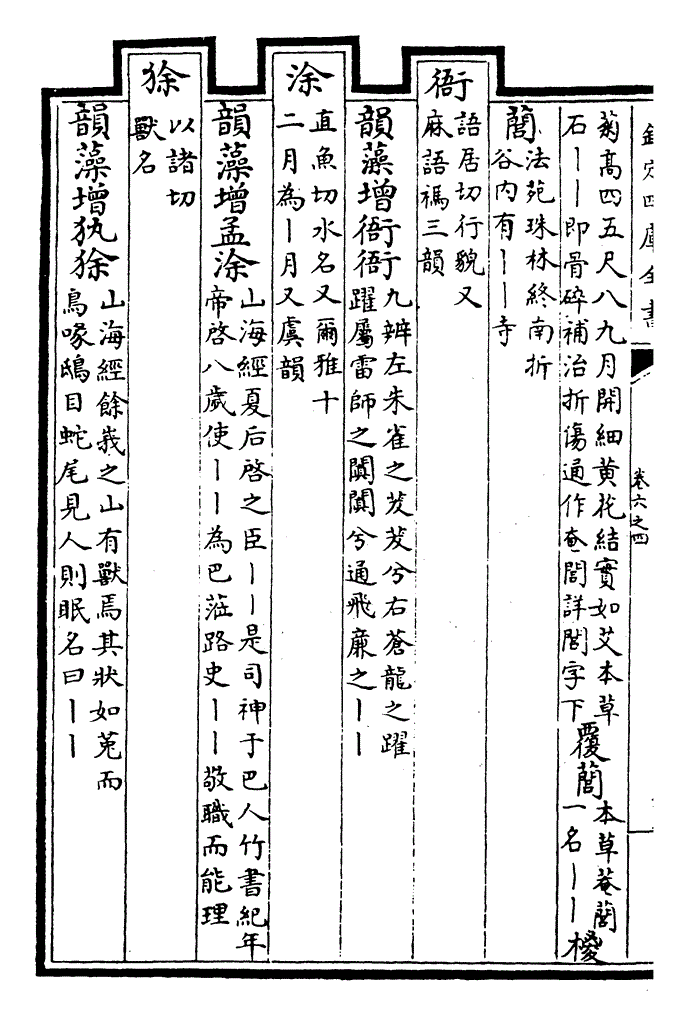 欽定四庫全書
卷六之四
菊高四五尺八九月開細黃花結實如艾本草
石丨丨即骨碎補治折傷通作奄閭詳閭字下
覆藘
本草菴藘
一名丨丨
椶
藘
法苑珠林終南折
谷内有丨丨寺
衙
語居切行貌又
麻語禡三韻
韻藻增衙衙
九辨左朱雀之茇茇兮右蒼龍之躍
躍屬雷師之闐闐兮通飛廉之丨丨
涂
直魚切水名又爾雅十
二月為丨月又虞韻
韻藻增孟涂
山海經夏后啓之臣丨丨是司神于巴人竹書紀年
帝啓八歲使丨丨為巴蒞路史丨丨敬職而能理
狳
以諸切
獸名
韻藻增犰狳
山海經餘峩之山有獸焉其狀如菟而
鳥喙鴟目蛇尾見人則眠名曰丨丨